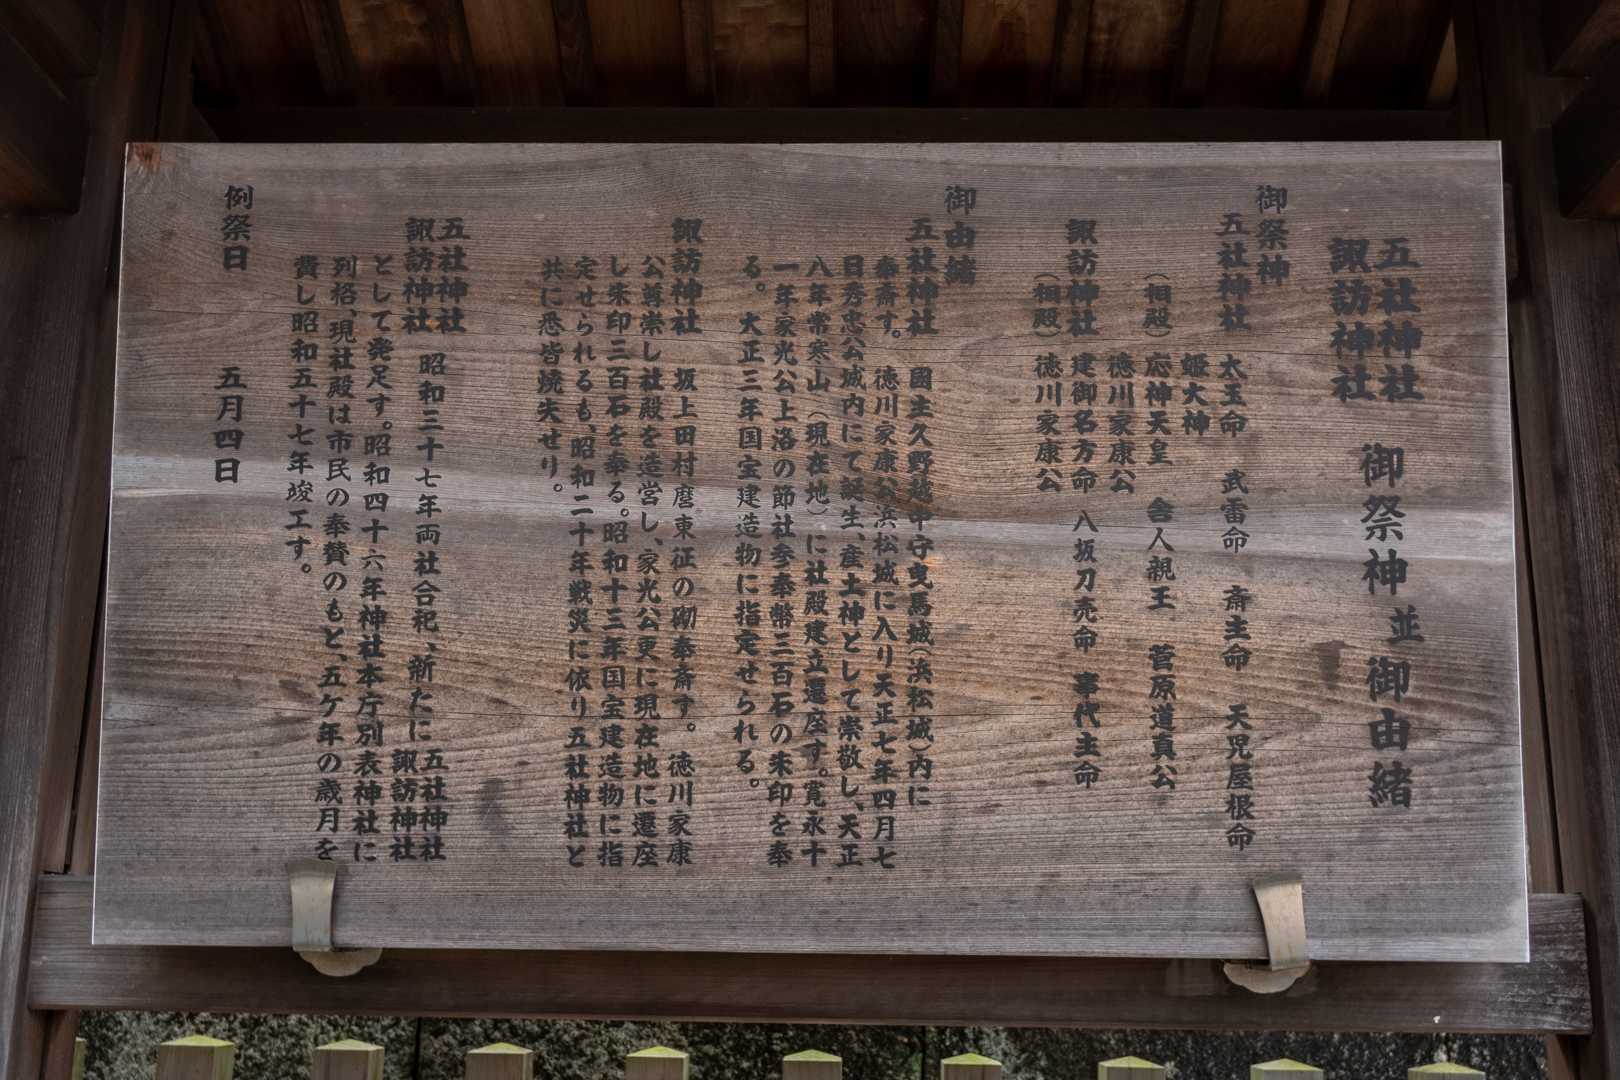 五社神社
諏訪神社
御祭神並御由緒
御祭神
五社神社 太玉命 武雷命 斎主命 天児屋根命
姫大神
(相殿) 応神天皇 舎人親王 菅原道真公
徳川家康公
諏訪神社 建御名方命 八坂刀売命 事代主命
(相殿) 徳川家康公
御由緒
五社神社 國主久野越中守曳馬城(浜松城)内に
奉斎す。徳川家康公浜松城に入り天正七年四月七
日秀忠公城内にて誕生、産土神として崇敬し、天正
八年常寒山(現在地)に社殿建立遷座す。寛永十
一年家光公上洛の節社参奉幣三百石の朱印を奉
る。大正三年国宝建造物に指定せられる。
諏訪神社 坂上田村麿東征の砌奉斎す。徳川家康
公尊崇し社殿を造営し、家光公更に現在地に遷座
し朱印三百石を奉る。昭和十三年国宝建造物に指
定せられるも、昭和二十年戦災に依り五社神社と
共に悉皆焼失せり。
五社神社
諏訪神社
昭和三十七年両社合祀、新たに
五社神社
諏訪神社
として発足す。昭和四十六年神社本庁別表神社に
列格、現社殿は市民の奉賛のもと、五ケ年の歳月を
費し昭和五十七年竣工す。
例祭日 五月四日